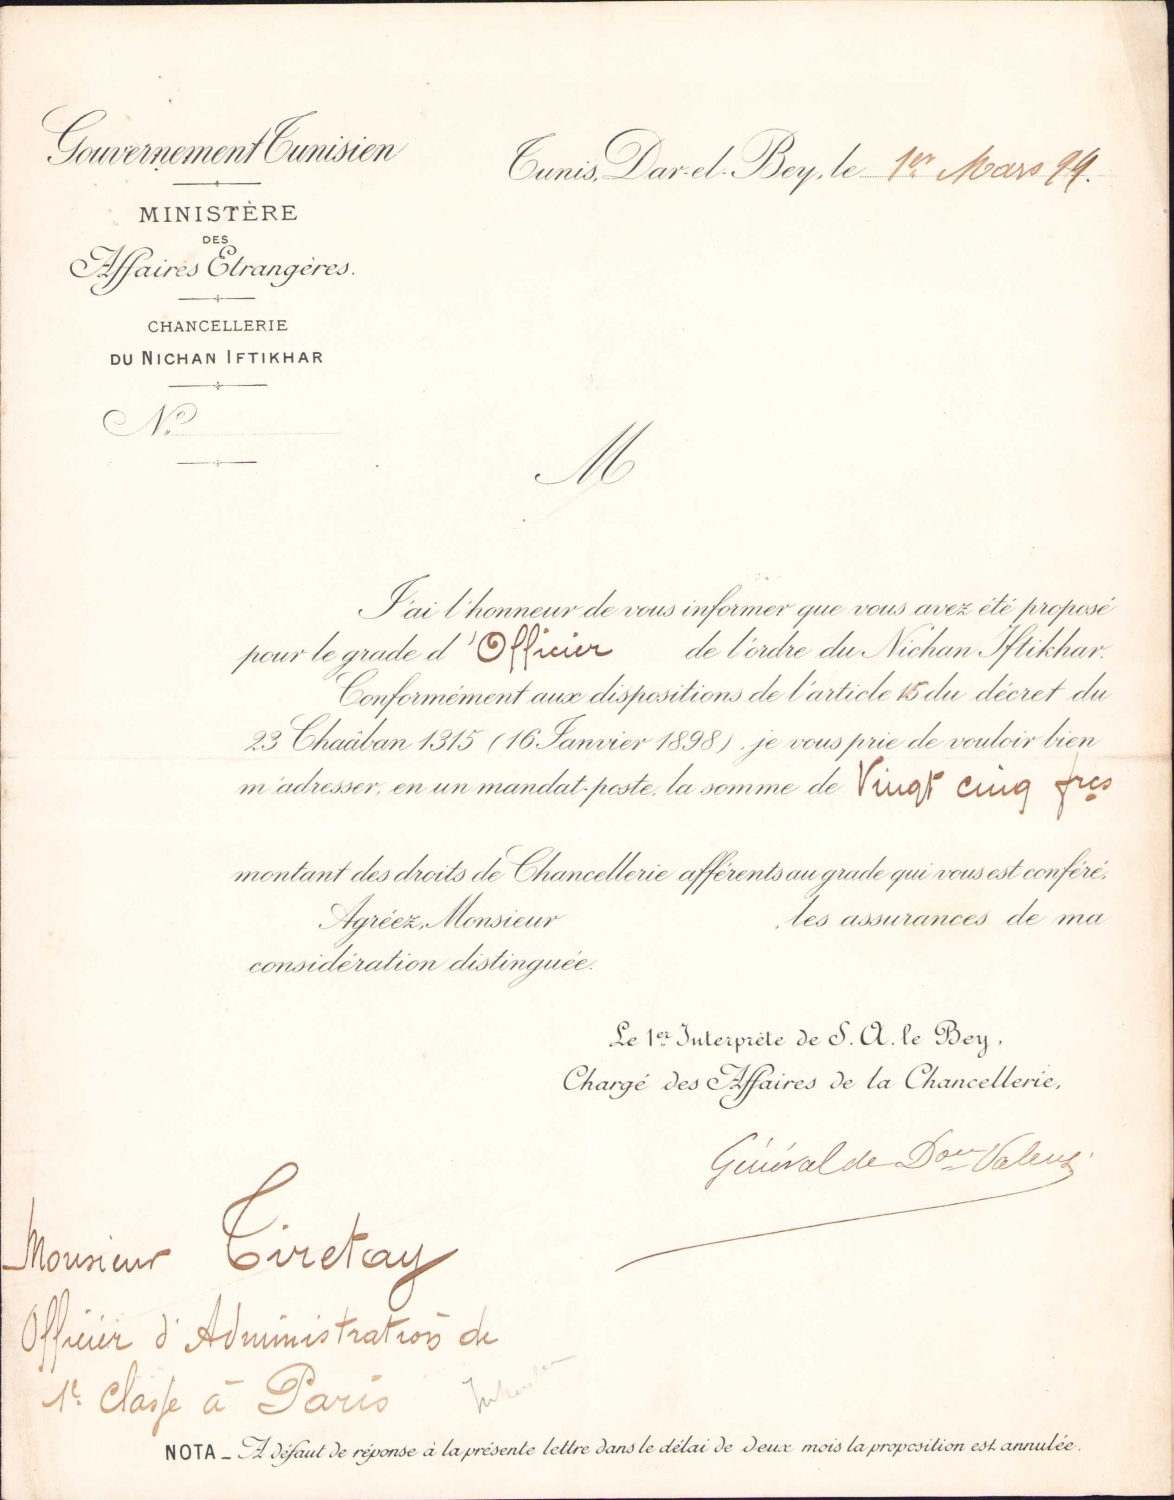 Gouvernement Tunisien
MINISTÈRE
DES
Affaires Etrangères.
CHANCELLERIE
DU NICHAN IFTIKHAR
N°
Tunis, Dar-el-Bey, le 1er Mars 99.
M
J'ai l'honneur de vous informer que vous avez été proposé
pour le grade d'Officier de l'ordre du Nichan Iftikhar.
Conformément aux dispositions de l'article 15 du décret du
23 Chaâban 1315 (16 Janvier 1898), je vous prie de vouloir bien
m'adresser, en un mandat-poste, la somme de Vingt cinq frcs
montant des droits de Chancellerie afférents au grade qui vous est conféré.
Agréez, Monsieur, les assurances de ma
considération distinguée.
Le 1er Interprète de S. A. le Bey,
Chargé des Affaires de la Chancellerie,
Général de Don Valensi
Monsieur Tiretay
Officier d'Administration de
1e. Classe à Paris
NOTA _ A défaut de réponse à la présente lettre dans le délai de deux mois la proposition est annulée.